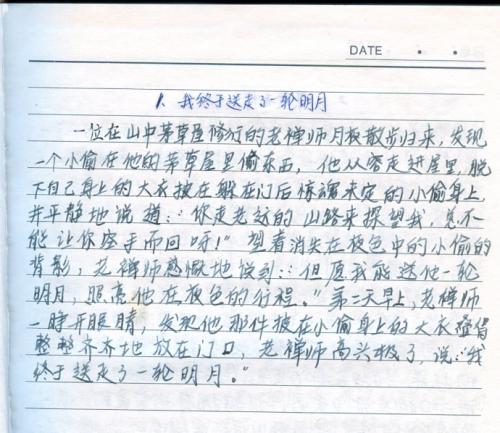 DATE · ·
1. 我终于送走了一轮明月
一位在山中茅草屋修行的老禅师月夜散步归来,发现
一个小偷在他的茅草屋里偷东西,他从容走进屋里,脱
下自己身上的大衣披在躲在门后惊魂未定的小偷身上,
并平静地说道:“你走老远的山路来探望我,总不
能让你空手而回呀!”望着消失在夜色中的小偷的
背影,老禅师感慨地说到:“但愿我能送他一轮
明月,照亮他在夜色的行程。”第二天早上,老禅师
一睁开眼睛,发现他那件披在小偷身上的大衣叠得
整整齐齐地放在门口,老禅师高兴极了,说:“我
终于送走了一轮明月。”